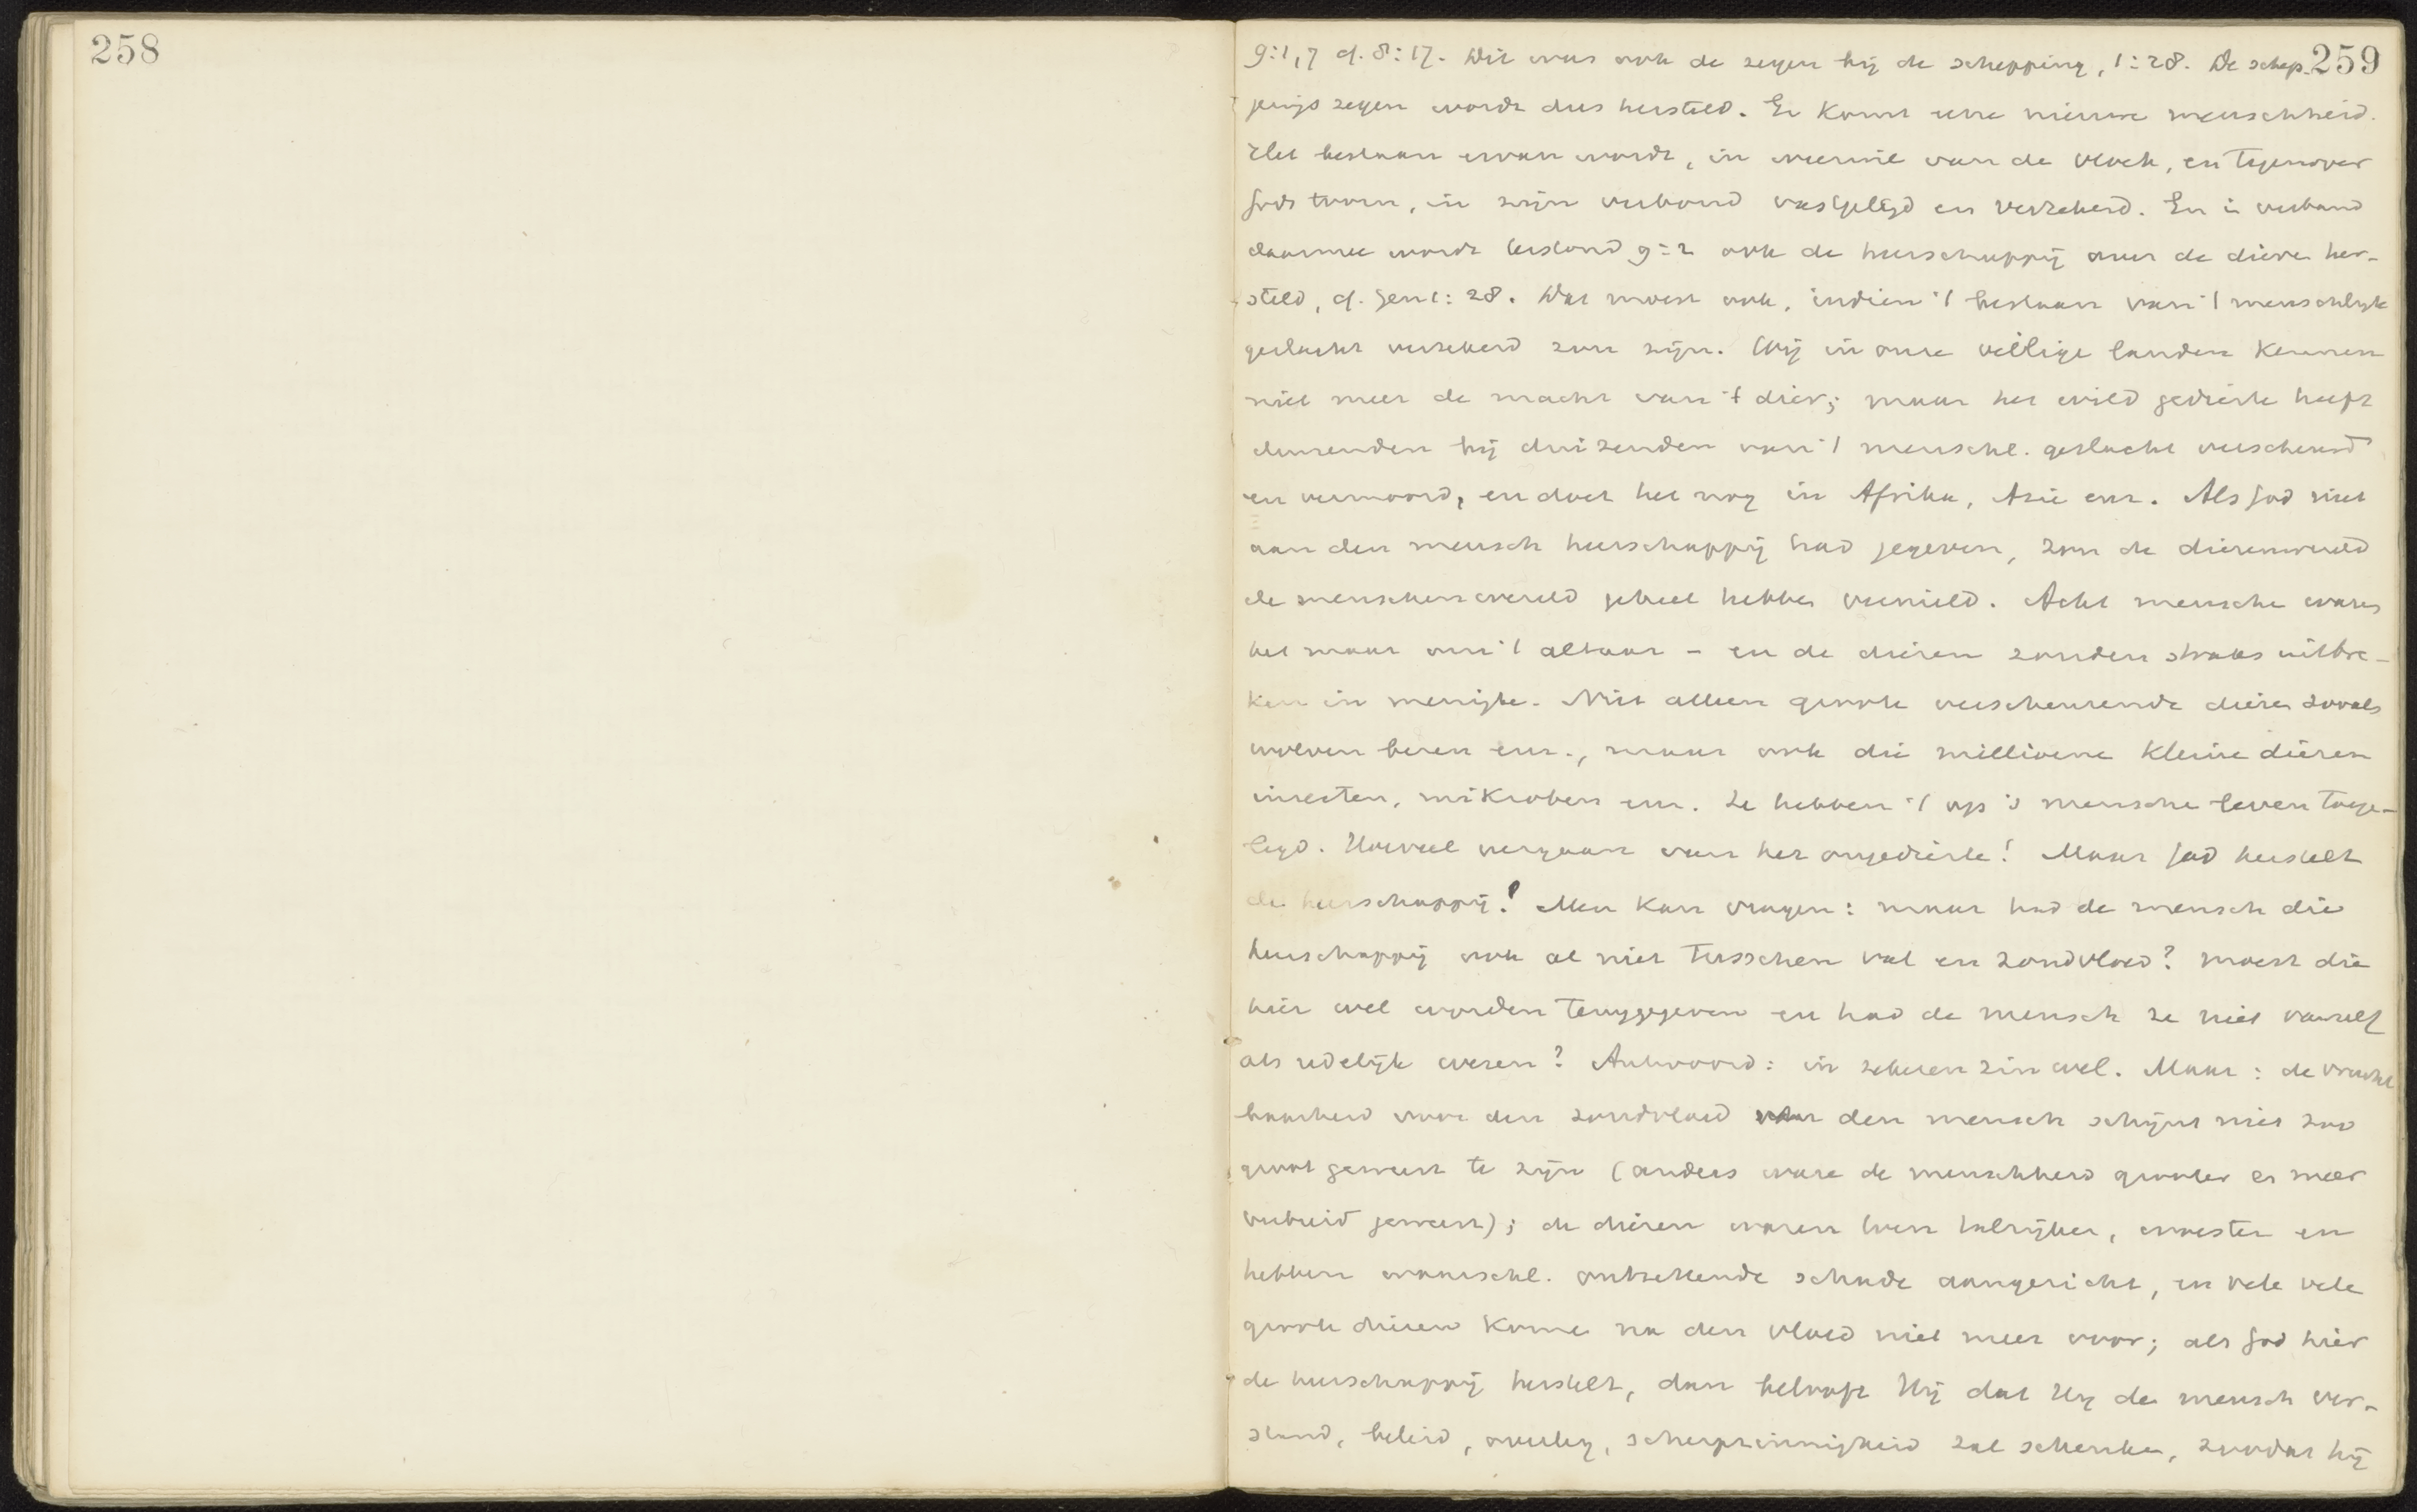 258
259
9:1,7 cf. 8:17. Dit was ook de zegen bij de schepping, 1:28. De schep-
pings zegen wordt dus hersteld. Er komt eene nieuwe menschheid.
Het bestaan ervan wordt, in weerwil van de vloek, en tegenover
Gods toorn, in zijn verbond vastgelegd en verzekerd. En in verband
daarmee wordt terstond 9:2 ook de heerschappij over de dieren her-
steld, cf. Gen 1:28. Dat moest ook, indien 't bestaan van 't menschlijk
geslacht verzekerd zou zijn. Wij in onze veilige landen kennen
niet meer de macht van 't dier; maar het wild gedierte heeft
duizenden bij duizenden van 't menschl. geslacht verscheurd
en vermoord, en doet het nog in Afrika, Azie enz. Als God niet
aan den mensch heerschappij had gegeven, zou de dierenwereld
de menschenwereld geheel hebben vernield. Acht menschen waren
het maar om 't altaar – en de dieren zouden straks uitbre-
ken in menigte. Niet alleen groote verscheurende dieren zooals
wolven beren enz., maar ook die millioene kleine dieren
insecten, mikroben enz. Ze hebben 't op 's menschen leven toege-
legd. Hoeveel vergaan van het ongedierte! Maar God herstelt
de heerschappij! Men kan vragen: maar had de mensch die
heerschappij ook al niet tusschen val en zondvloed? moest die
hier wel worden teruggegeven en had de mensch ze niet vanzelf
als redelijk wezen? Antwoord: in zekeren zin wel. Maar: de vrucht
baarheid voor den zondvloed van den mensch schijnt niet zoo
groot geweest te zijn (anders ware de menschheid grooter en meer
verbreid geweest); de dieren waren toen talrijker, woester en
hebben waarschl. ontzettende schade aangericht, en vele vele
groote dieren komen na den vloed niet meer voor; als God hier
de heerschappij herstelt, dan belooft Hij dat Hij de mensch ver-
stand, beleid, overleg, scherpzinnigheid zal schenken, zoodat hij